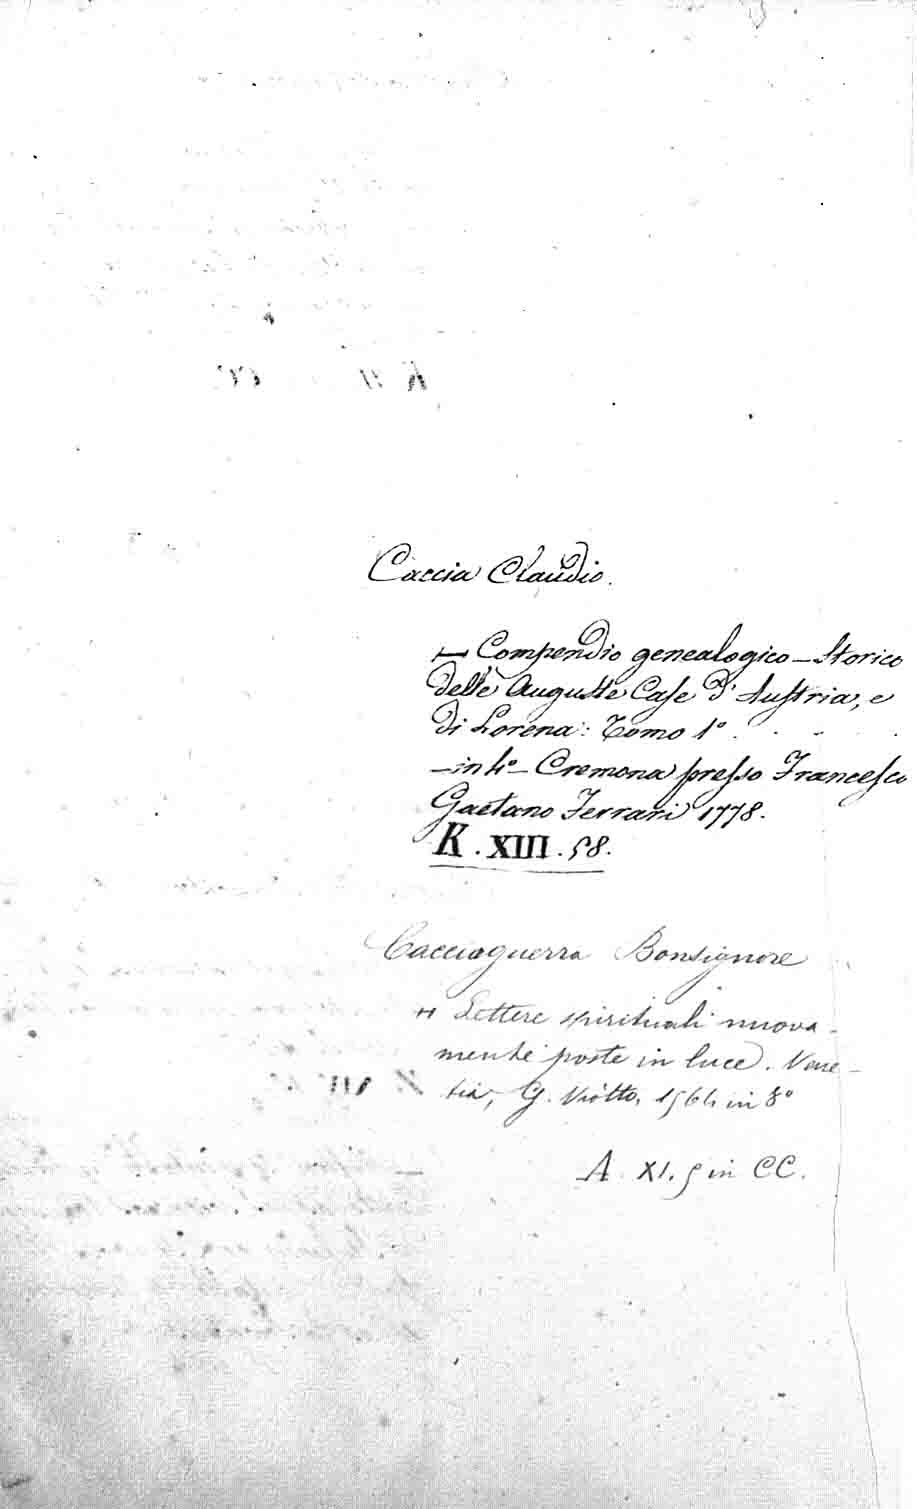 Caccia Claudio.
— Compendio genealogico-Storico
delle Auguste Case d'Austria, e
di Lorena: Tomo 1°.
— in 4° — Cremona presso Francesco
Gaetano Ferrari 1778.
K. XIII. 58.
Cacciaguerra Bonsignore
Lettere spirituali nuova-
mente poste in luce. Vene-
tia, G. Viotto, 1564 in 8°
A XI. 5 in CC.